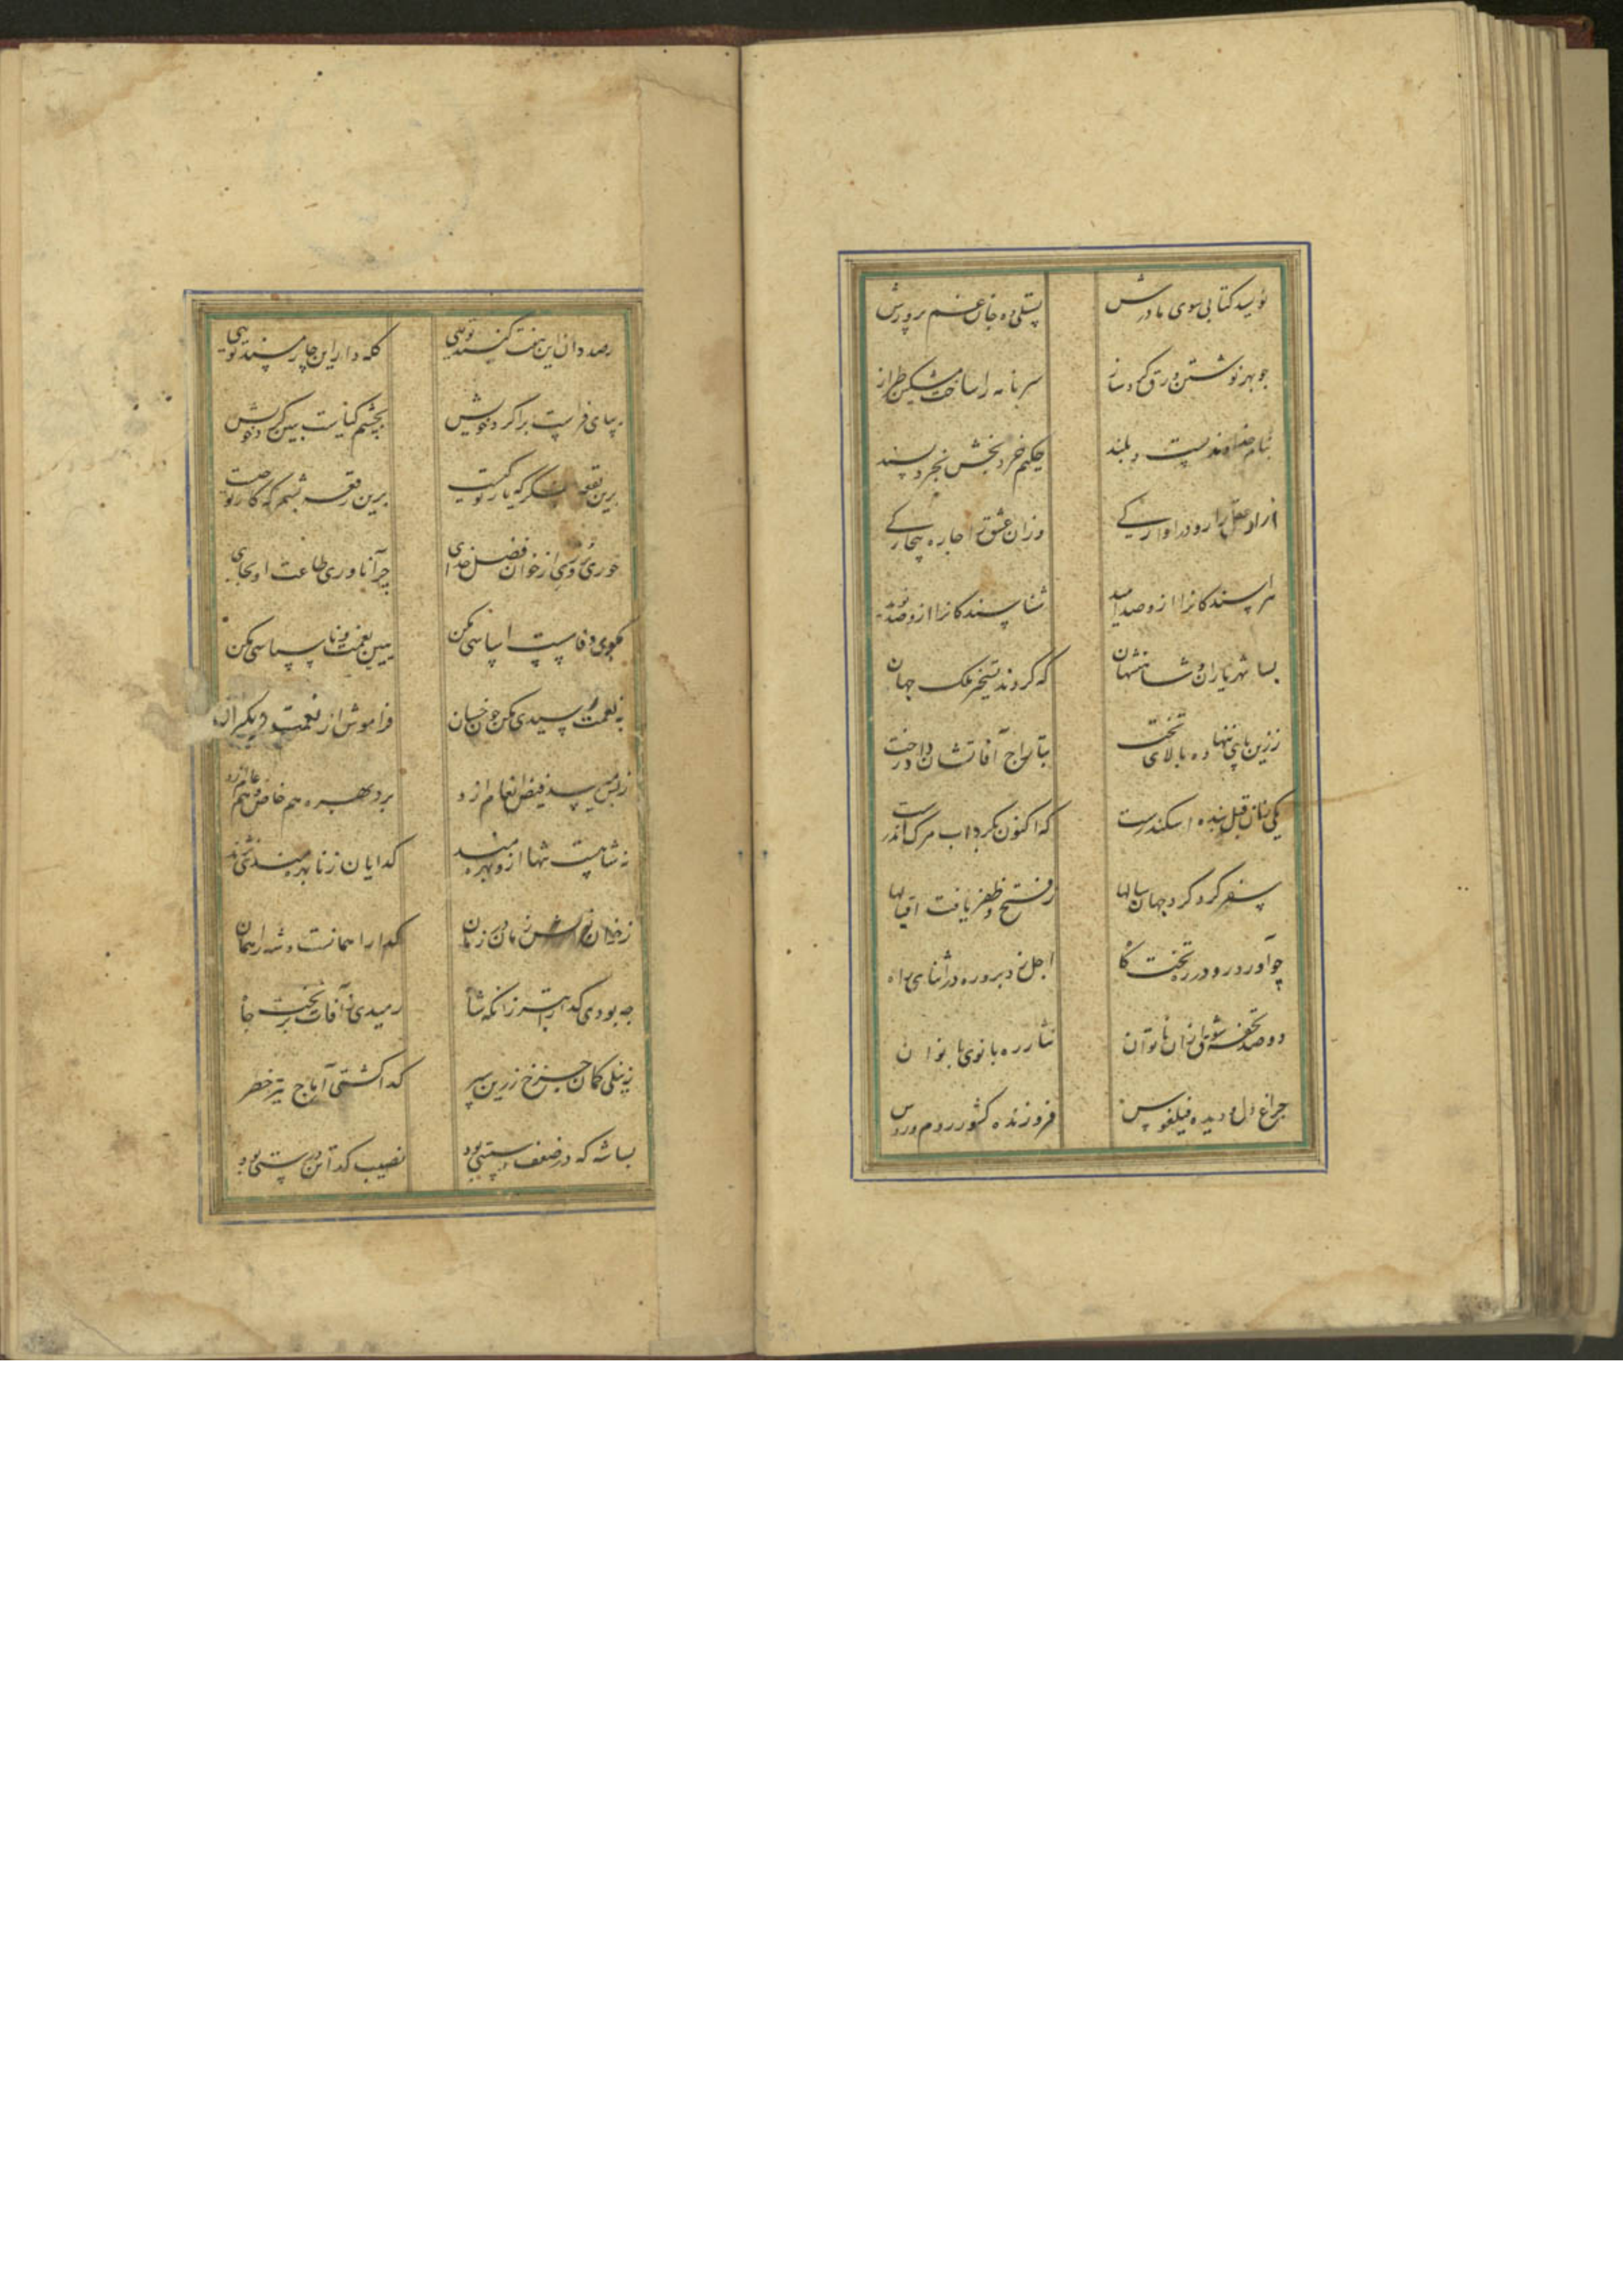 نویسد کتابی سوی مادرش تسلی ده جان غم پرورش
چو بهر نوشتن ورق کرد ساز سر نامه را ساخت مشکین طراز
بنام خداوند پست و بلند حکیم خرد بخش بخرد پسند
ازو عقل را رو در آوارگی وزان عشق را چاره بیچارگی
هراسندگانرا ازو صد امید شناسندگانرا ازو صد نوید
بسا شهریاران و شاهنشهان که کردند تسخیر ملک جهان
ز زین پای ننهاده بالای تخت بتاراج آفاتشان داد رخت
یکی زان قبل بنده اسکندرست که اکنون بگرداب مرگ اندرست
سفر کرد گرد جهان سالها ز فتح و ظفر یافت اقبالها
چو آورد رو در ره تختگاه اجل زد برو ره در اثنای راه
دو صد تحفه شوق ازان ناتوان نثار ره بانوی بانوان
چراغ دل و دیده فیلقوس فروزنده کشور روم و روس
رصد دان این هفت گنبد تویی کله دار این چار مسند تویی
بپای فراست برا گرد خویش بچشم کیاست ببین کرد خویش
برین بقعه بنگر که یار تو کیست برین رقعه بشمر که کار تو چیست
خوری روزی از خوان فضل خدای چرا ناوری طاعت او بجای
بکوی وفا سست اساسی مکن ببین نعمت و ناسپاسی مکن
به نعمت رسیدی مکن چون خسان فراموش از نعمت دیگران
ز بس میرسد فیض انعام ازو برد بهره هم خاص و هم عام ازو
نه شاهست تنها ازو بهره مند گدایان ز نا بهره مندی نژند
ز خوان نوالش زمان در زمان گدا را همانست و شه را همان
چه بودی گدا زانکه شاه رمیدی ز آفات
ز نیلی کمان چرخ زرین سپر گدا گشتی آماج تیر خطر
بسا شه که در ضعف و سستی بود نصیب گدا تندرستی بود